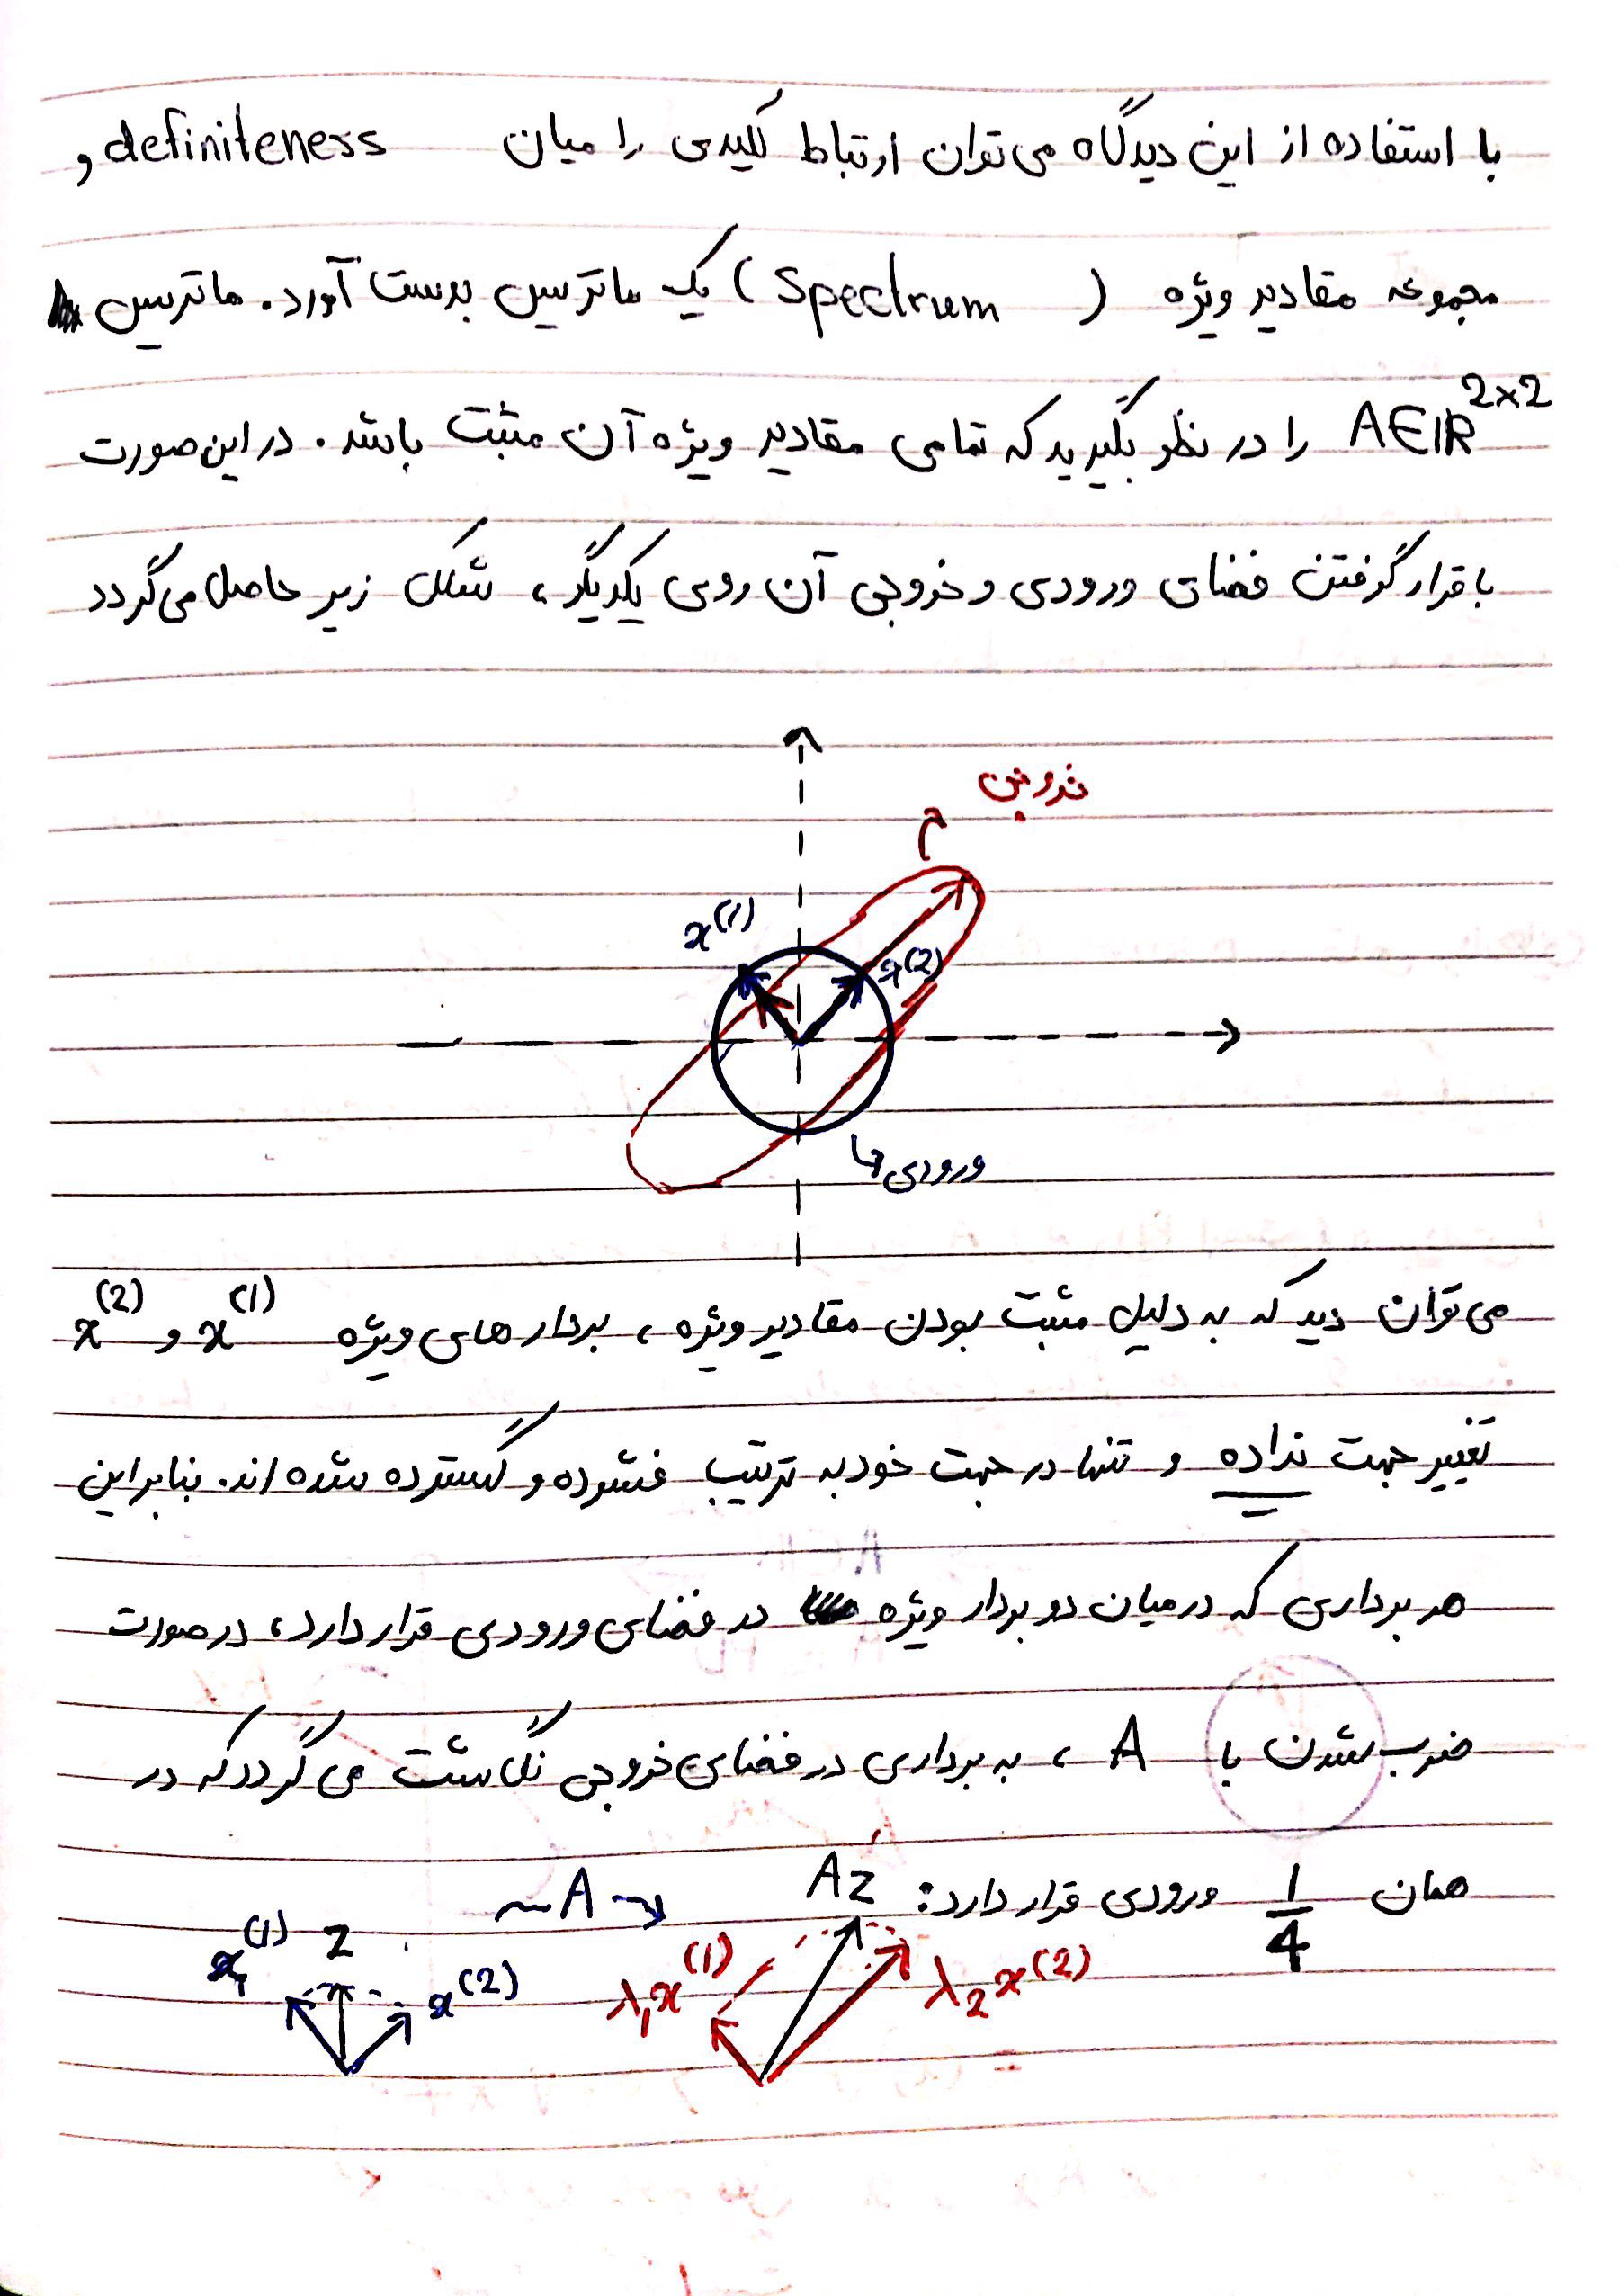 با استفاده از این دیدگاه می‌توان ارتباط کلیدی را میان definiteness و
مجموعه مقادیر ویژه (Spectrum) یک ماتریس بدست آورد. ماتریس
A∈ℝ^{2×2} را در نظر بگیرید که تمامی مقادیر ویژه آن مثبت باشد. در این صورت
با قرار گرفتن فضای ورودی و خروجی آن روی یکدیگر، شکل زیر حاصل می‌گردد
خروجی
x^{(1)}
x^{(2)}
ورودی
می‌توان دید که به دلیل مثبت بودن مقادیر ویژه، بردارهای ویژه x^{(1)} و x^{(2)}
تغییر جهت نداده و تنها در جهت خود به ترتیب فشرده و گسترده شده اند. بنابراین
هر برداری که در میان دو بردار ویژه در فضای ورودی قرار دارد، در صورت
ضرب شدن با A، به برداری در فضای خروجی نگاشت می‌گردد که در
همان 1/4 ورودی قرار دارد:
x^{(1)} z x^{(2)} ~A→ λ₁x^{(1)} Az λ₂x^{(2)}